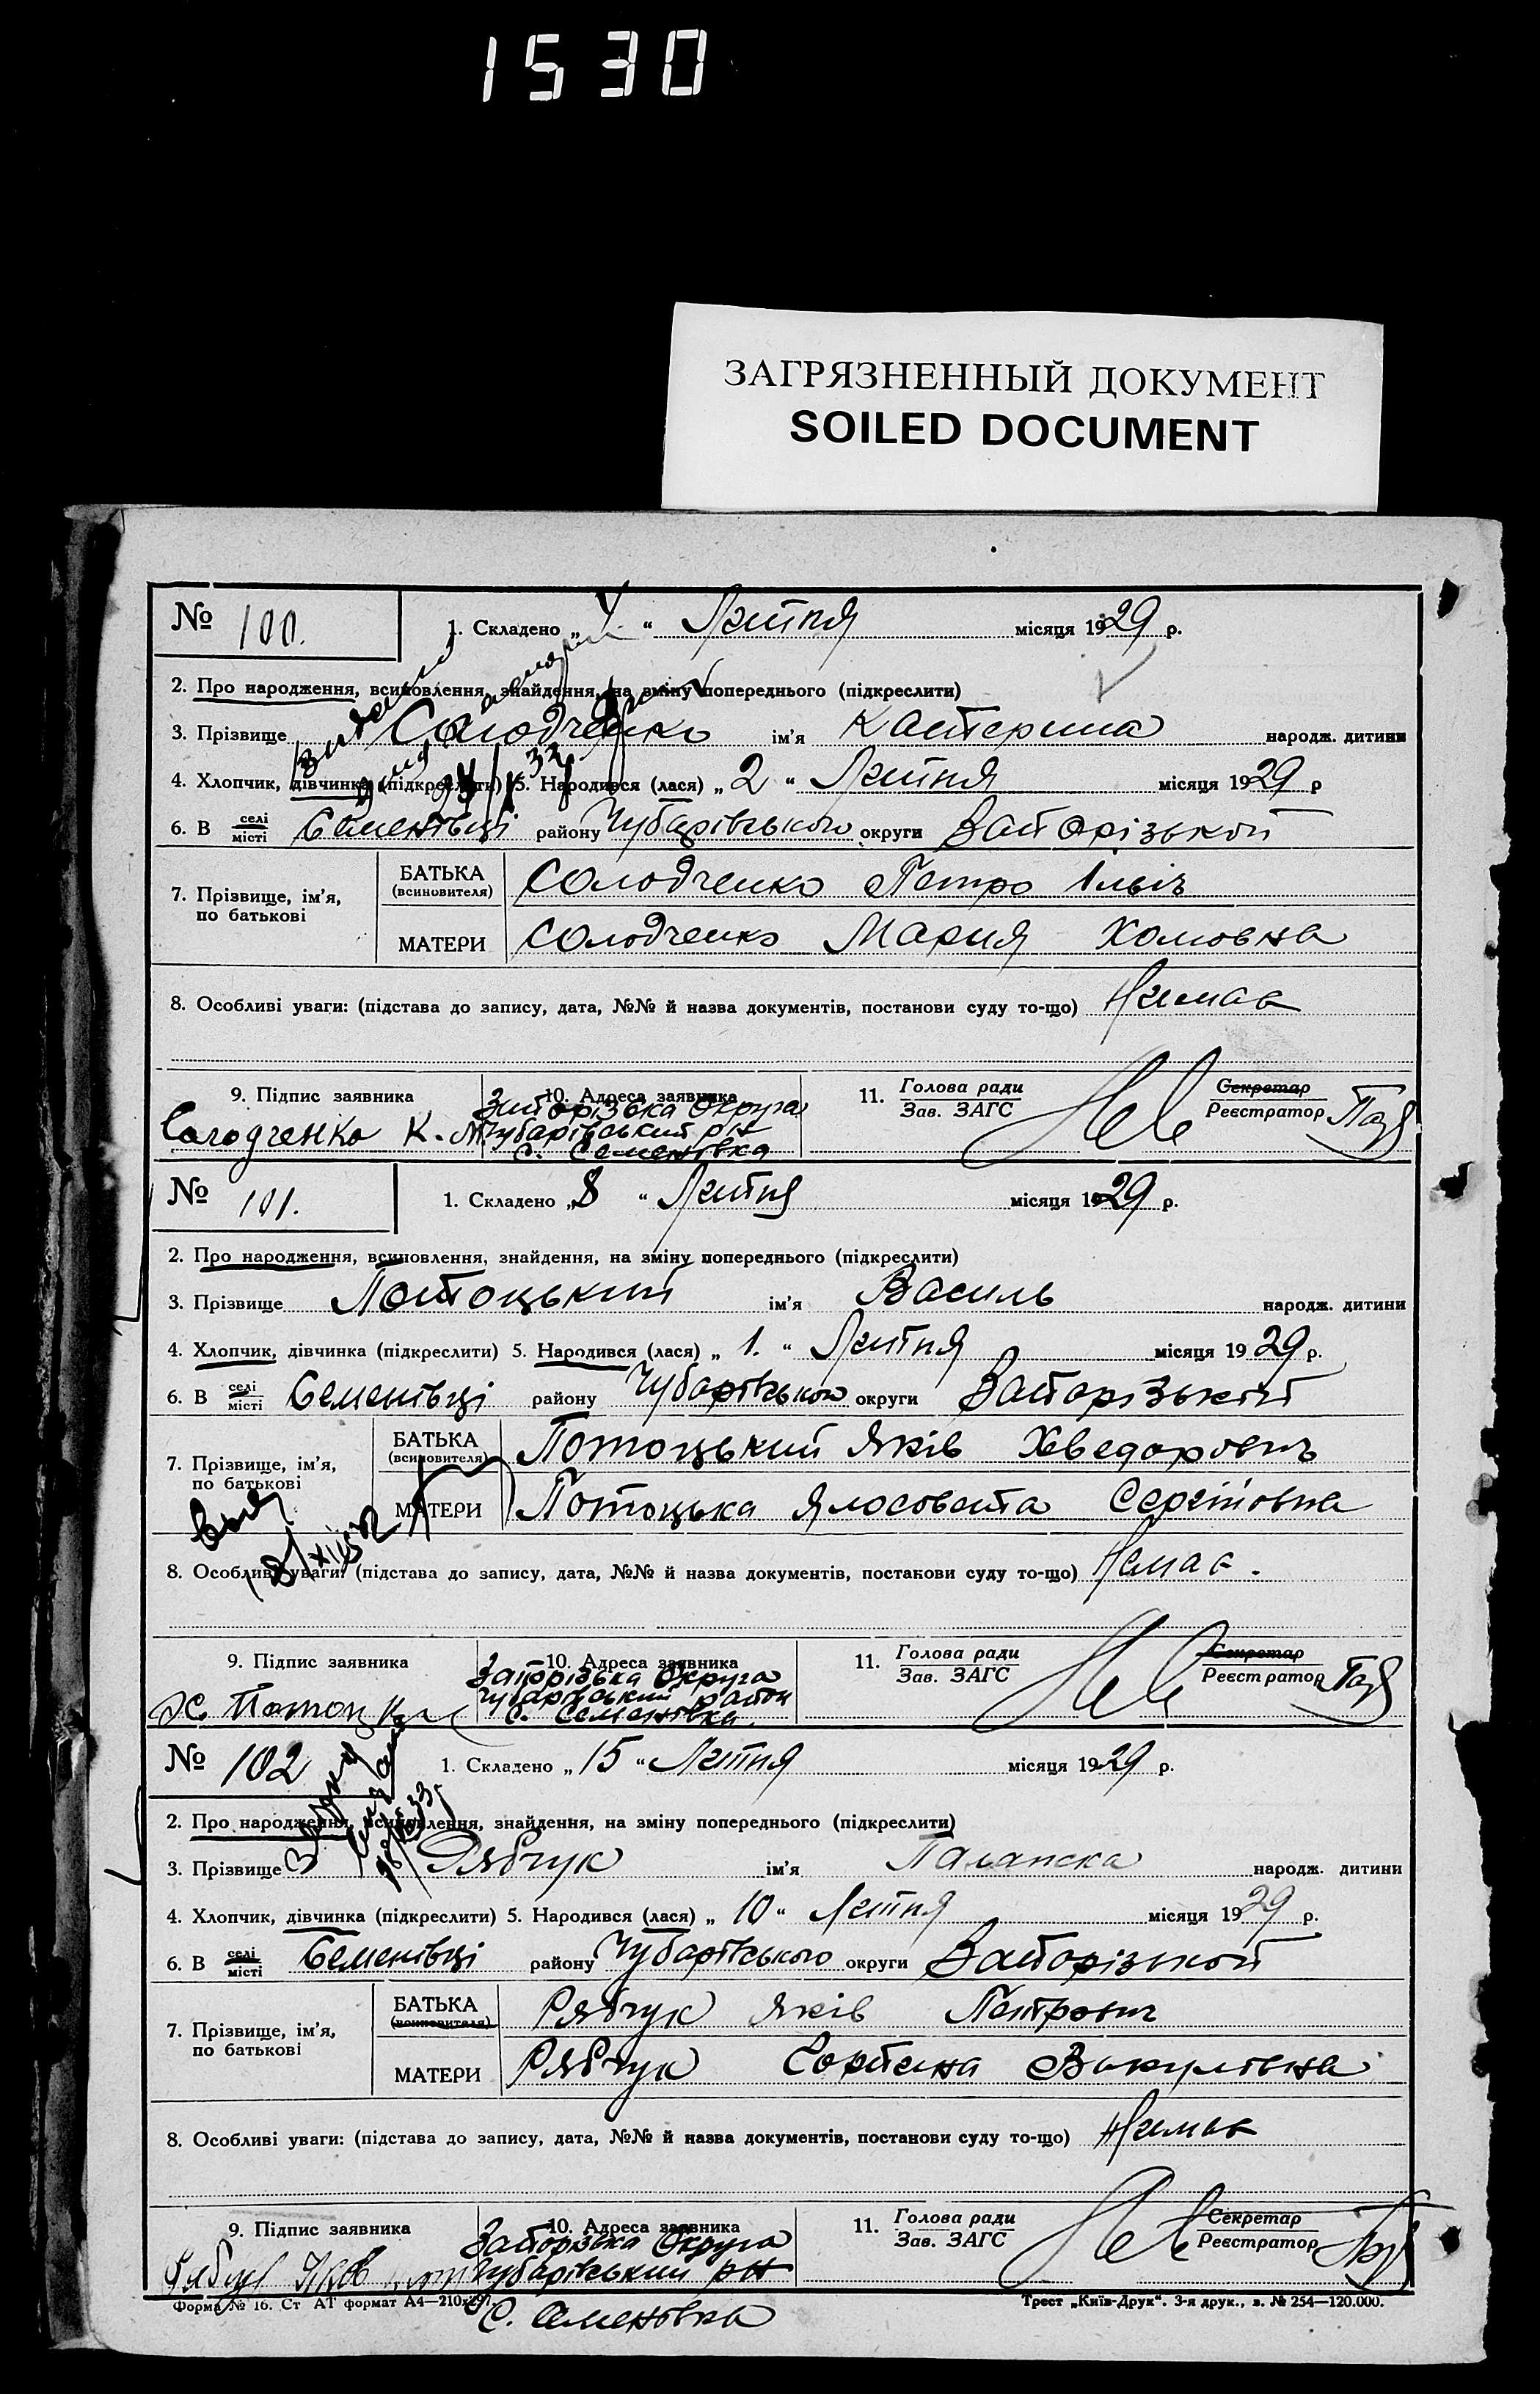 1530
ЗАГРЯЗНЕННЫЙ ДОКУМЕНТ
SOILED DOCUMENT
№ 100. 1. Складено „ " Літня місяця 1929 р.
2. Про народження, всиновлення, знайдення, на зміну попереднього (підкреслити)
3. Прізвище Солодченко ім'я Катерина народж. дитини
4. Хлопчик, дівчинка (підкреслити) 5. Народився (лася) „ 2 " Літня місяця 1929 р
6. В селі місті Семенівці району Чубарівського округи Запорізькой
7. Прізвище, ім'я, по батькові
БАТЬКА (всиновителя) Солодченко Петро Ільіч
МАТЕРИ Солодченко Мария Хомовна
8. Особливі уваги: (підстава до запису, дата, №№ й назва документів, постанови суду то-що) Немає
9. Підпис заявника 10. Адреса заявника 11. Голова ради Зав. ЗАГС Секретар Реєстратор
Солодченко К. Запорізька Округа
Чубарівський рн
с. Семенівка
№ 101. 1. Складено „ 8 " Літня місяця 1929 р.
2. Про народження, всиновлення, знайдення, на зміну попереднього (підкреслити)
3. Прізвище Потоцький ім'я Василь народж. дитини
4. Хлопчик, дівчинка (підкреслити) 5. Народився (лася) „ 1. " Літня місяця 1929 р.
6. В селі місті Семенівці району Чубарівського округи Запорізькій
7. Прізвище, ім'я, по батькові
БАТЬКА (всиновителя) Потоцький Яків Хведорович
МАТЕРИ Потоцька Ялосовета Сергіовна
8. Особливі уваги: (підстава до запису, дата, №№ й назва документів, постанови суду то-що) Немає.
9. Підпис заявника 10. Адреса заявника 11. Голова ради Зав. ЗАГС Секретар Реєстратор
Запорізька Округа
Чубарівський район
с. Семенівка.
№ 102 1. Складено „ 15 " Літня місяця 1929 р.
2. Про народження, всиновлення, знайдення, на зміну попереднього (підкреслити)
3. Прізвище Рябчук ім'я Палажка народж. дитини
4. Хлопчик, дівчинка (підкреслити) 5. Народився (лася) „ 10 " Літня місяця 1929 р.
6. В селі місті Семенівці району Чубарівського округи Запорізькой
7. Прізвище, ім'я, по батькові
БАТЬКА (всиновителя) Рябчук Яків Петрович
МАТЕРИ Рябчук Вакулівна
8. Особливі уваги: (підстава до запису, дата, №№ й назва документів, постанови суду то-що) Немає
9. Підпис заявника 10. Адреса заявника 11. Голова ради Зав. ЗАГС Секретар Реєстратор
Запорізька Округа
Чубарівський рн
с. Семеновка
Форма № 16. Ст АТ формат А4—210×297 Трест „Київ-Друк". 3-я друк., з. № 254—120.000.